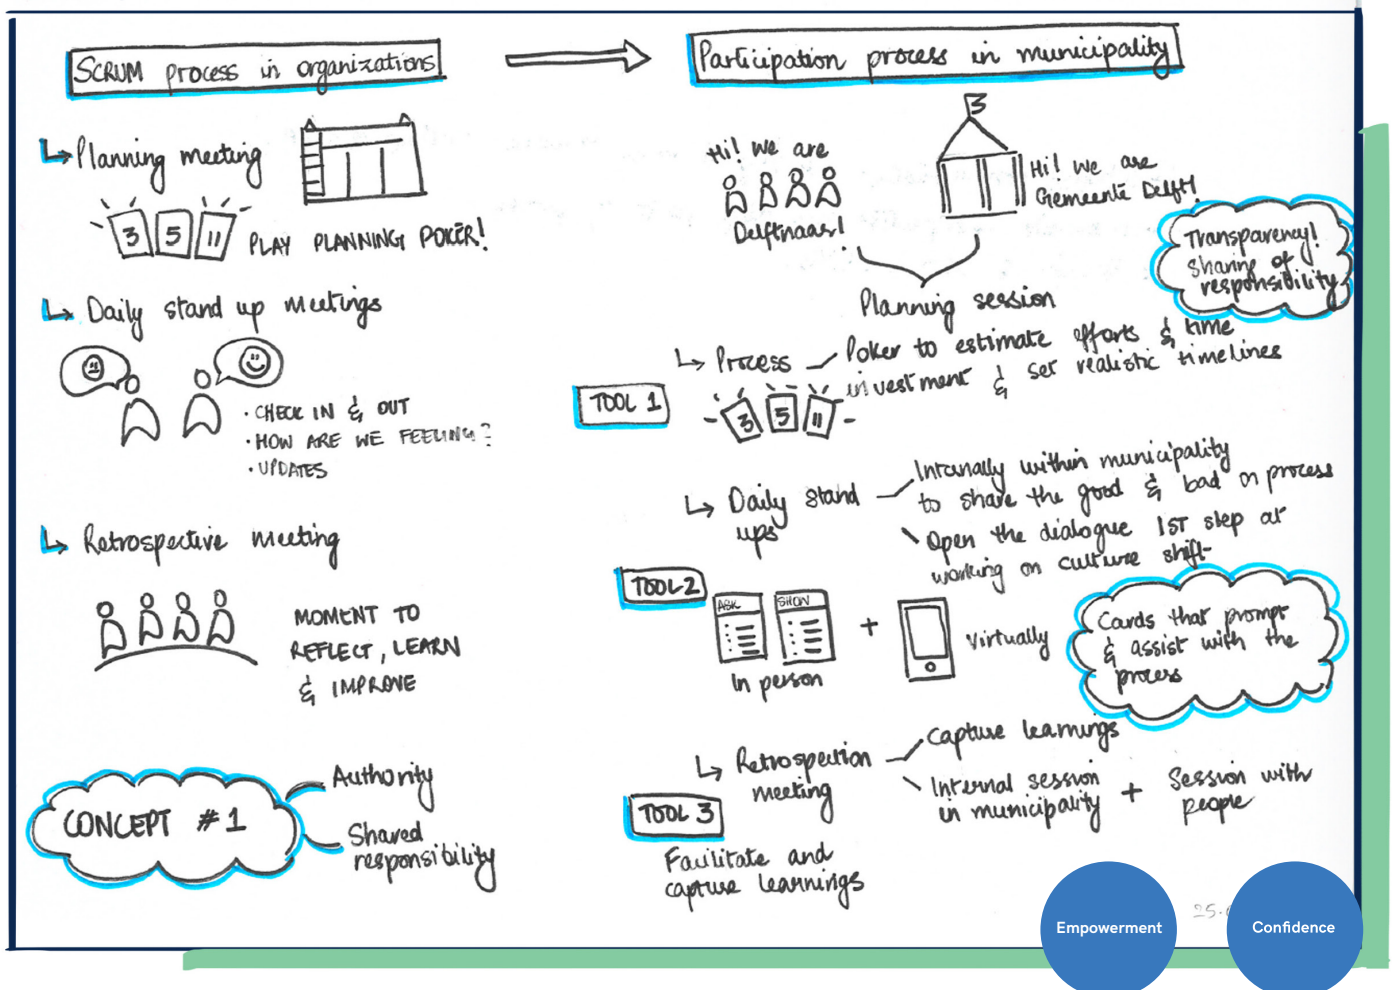 SCRUM process in organizations
Planning meeting
3 5 11
PLAY PLANNING POKER!
Daily stand up meetings
· CHECK IN & OUT
· HOW ARE WE FEELING?
· UPDATES
Retrospective meeting
MOMENT TO
REFLECT, LEARN
& IMPROVE
CONCEPT #1
Authority
Shared
responsibility
Participation process in municipality
Hi! We are
Delftnaars!
Hi! We are
Gemeente Delft!
Transparency!
sharing of
responsibility
Planning session
Process
Poker to estimate efforts & time
investment & set realistic timelines
TOOL 1
3 5 11
Daily stand
ups
Internally within municipality
to share the good & bad on process
Open the dialogue 1ST step at
working on culture shift
TOOL 2
ASK
SHOW
In person
+
Virtually
Cards that prompt
& assist with the
process
Retrospection
meeting
capture learnings
Internal session
in municipality
+
Session with
people
TOOL 3
Failitate and
capture learnings
25.
Empowerment
Confidence